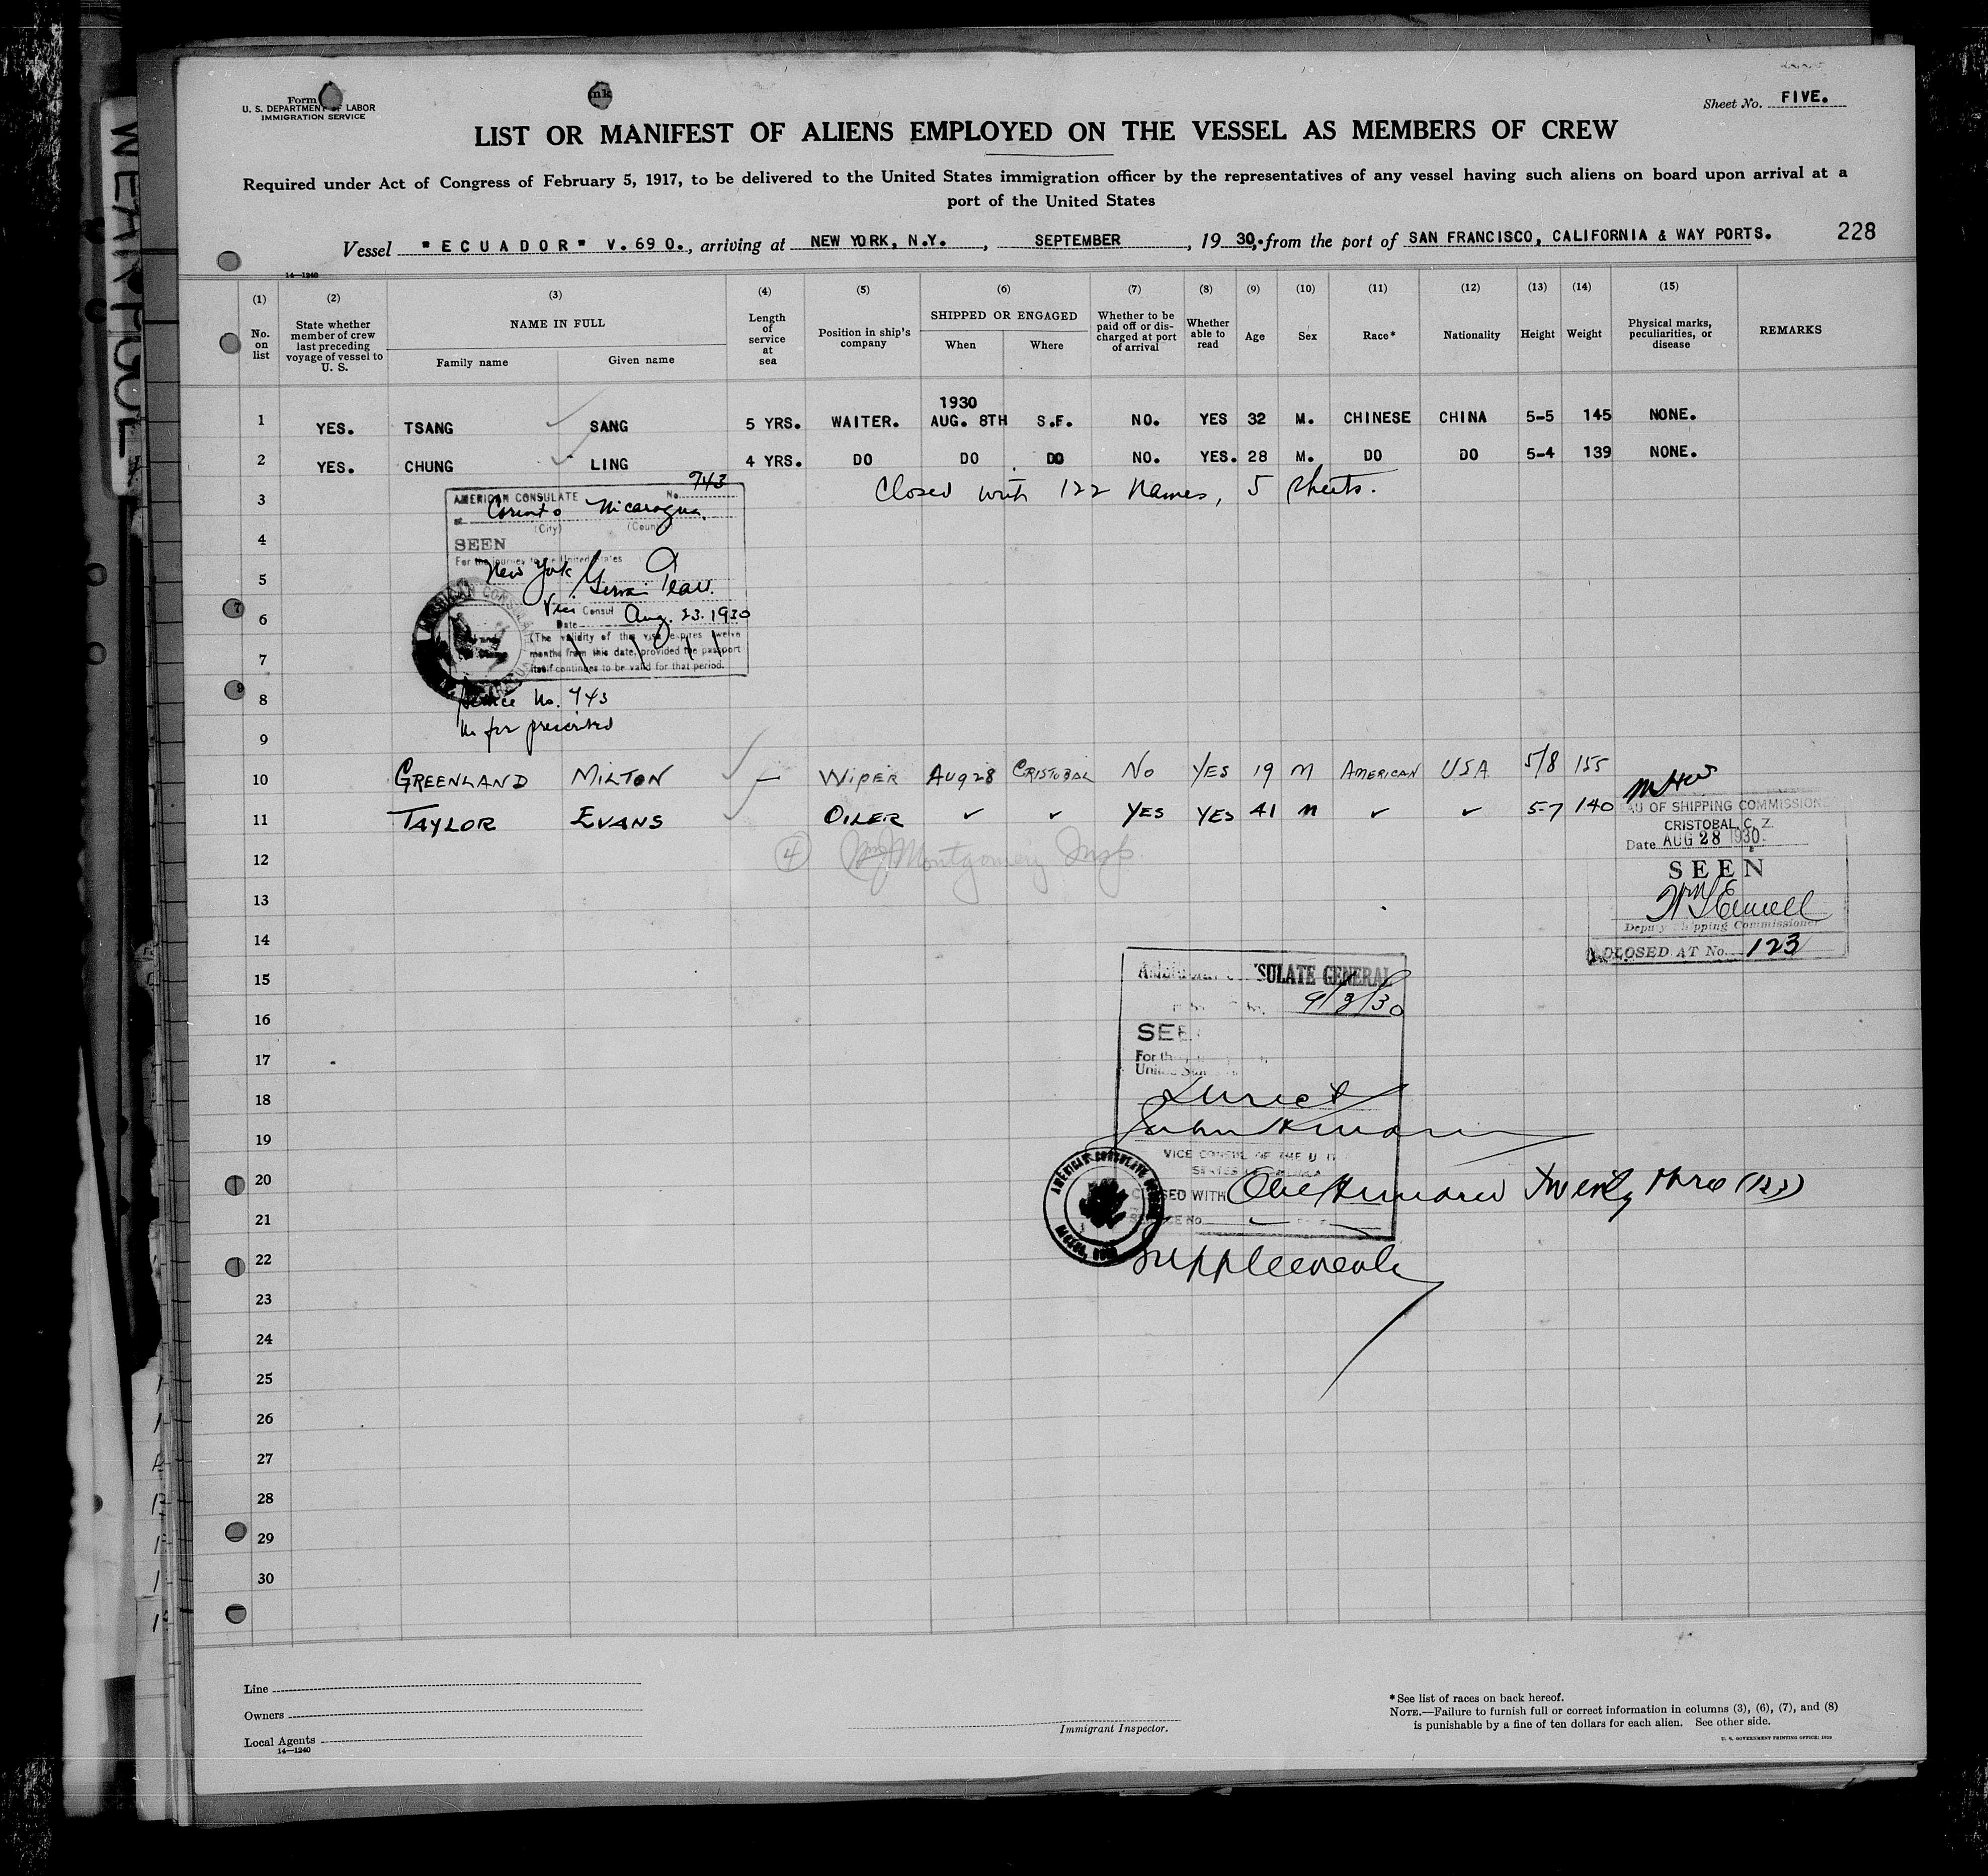 Form
U. S. DEPARTMENT OF LABOR
IMMIGRATION SERVICE
Sheet No. FIVE.
LIST OR MANIFEST OF ALIENS EMPLOYED ON THE VESSEL AS MEMBERS OF CREW
Required under Act of Congress of February 5, 1917, to be delivered to the United States immigration officer by the representatives of any vessel having such aliens on board upon arrival at a
port of the United States
Vessel "ECUADOR" V. 69 O., arriving at NEW YORK, N.Y., SEPTEMBER, 1930, from the port of SAN FRANCISCO, CALIFORNIA & WAY PORTS. 228
14—1240
(1) No. on list
(2) State whether member of crew last preceding voyage of vessel to U. S.
(3) NAME IN FULL
Family name Given name
(4) Length of service at sea
(5) Position in ship's company
(6) SHIPPED OR ENGAGED
When Where
(7) Whether to be paid off or discharged at port of arrival
(8) Whether able to read
(9) Age
(10) Sex
(11) Race*
(12) Nationality
(13) Height
(14) Weight
(15) Physical marks, peculiarities, or disease
REMARKS
1930
1 YES. TSANG SANG 5 YRS. WAITER. AUG. 8TH S.F. NO. YES 32 M. CHINESE CHINA 5-5 145 NONE.
2 YES. CHUNG LING 4 YRS. DO DO DO NO. YES. 28 M. DO DO 5-4 139 NONE.
3 Closed with 122 names, 5 sheets.
AMERICAN CONSULATE No. 743
at Corinto Nicaragua.
(City) (Country)
4
SEEN
For the journey to the United States
5
New York
6
Vice Consul
Date Aug. 23. 1930
(The validity of this visa expires twelve
7
months from this date, provided the passport
itself continues to be valid for that period.
8
Service No. 743
No fee prescribed
9
10 GREENLAND MILTON — WIPER AUG 28 CRISTOBAL NO YES 19 M AMERICAN USA 5/8 155
11 TAYLOR EVANS OILER ✓ ✓ YES YES 41 M ✓ ✓ 5-7 140
AU OF SHIPPING COMMISSION
CRISTOBAL, C. Z.
Date AUG 28 1930
SEEN
Deputy Shipping Commissioner
CLOSED AT No. 123
12 4 Montgomery Insp.
13
14
15
CONSULATE GENERAL
9/3/30
16
SEEN
17
For the
United States
18
Direct
19
VICE CONSUL OF THE UNITED
STATES OF AMERICA
20
CLOSED WITH One Hundred Twenty three (123)
21
SERVICE No.
AMERICAN CONSULATE
22
Supplemental
23
24
25
26
27
28
29
30
Line
Owners
Local Agents
14—1240
Immigrant Inspector.
*See list of races on back hereof.
NOTE.—Failure to furnish full or correct information in columns (3), (6), (7), and (8)
is punishable by a fine of ten dollars for each alien. See other side.
U. S. GOVERNMENT PRINTING OFFICE: 1929